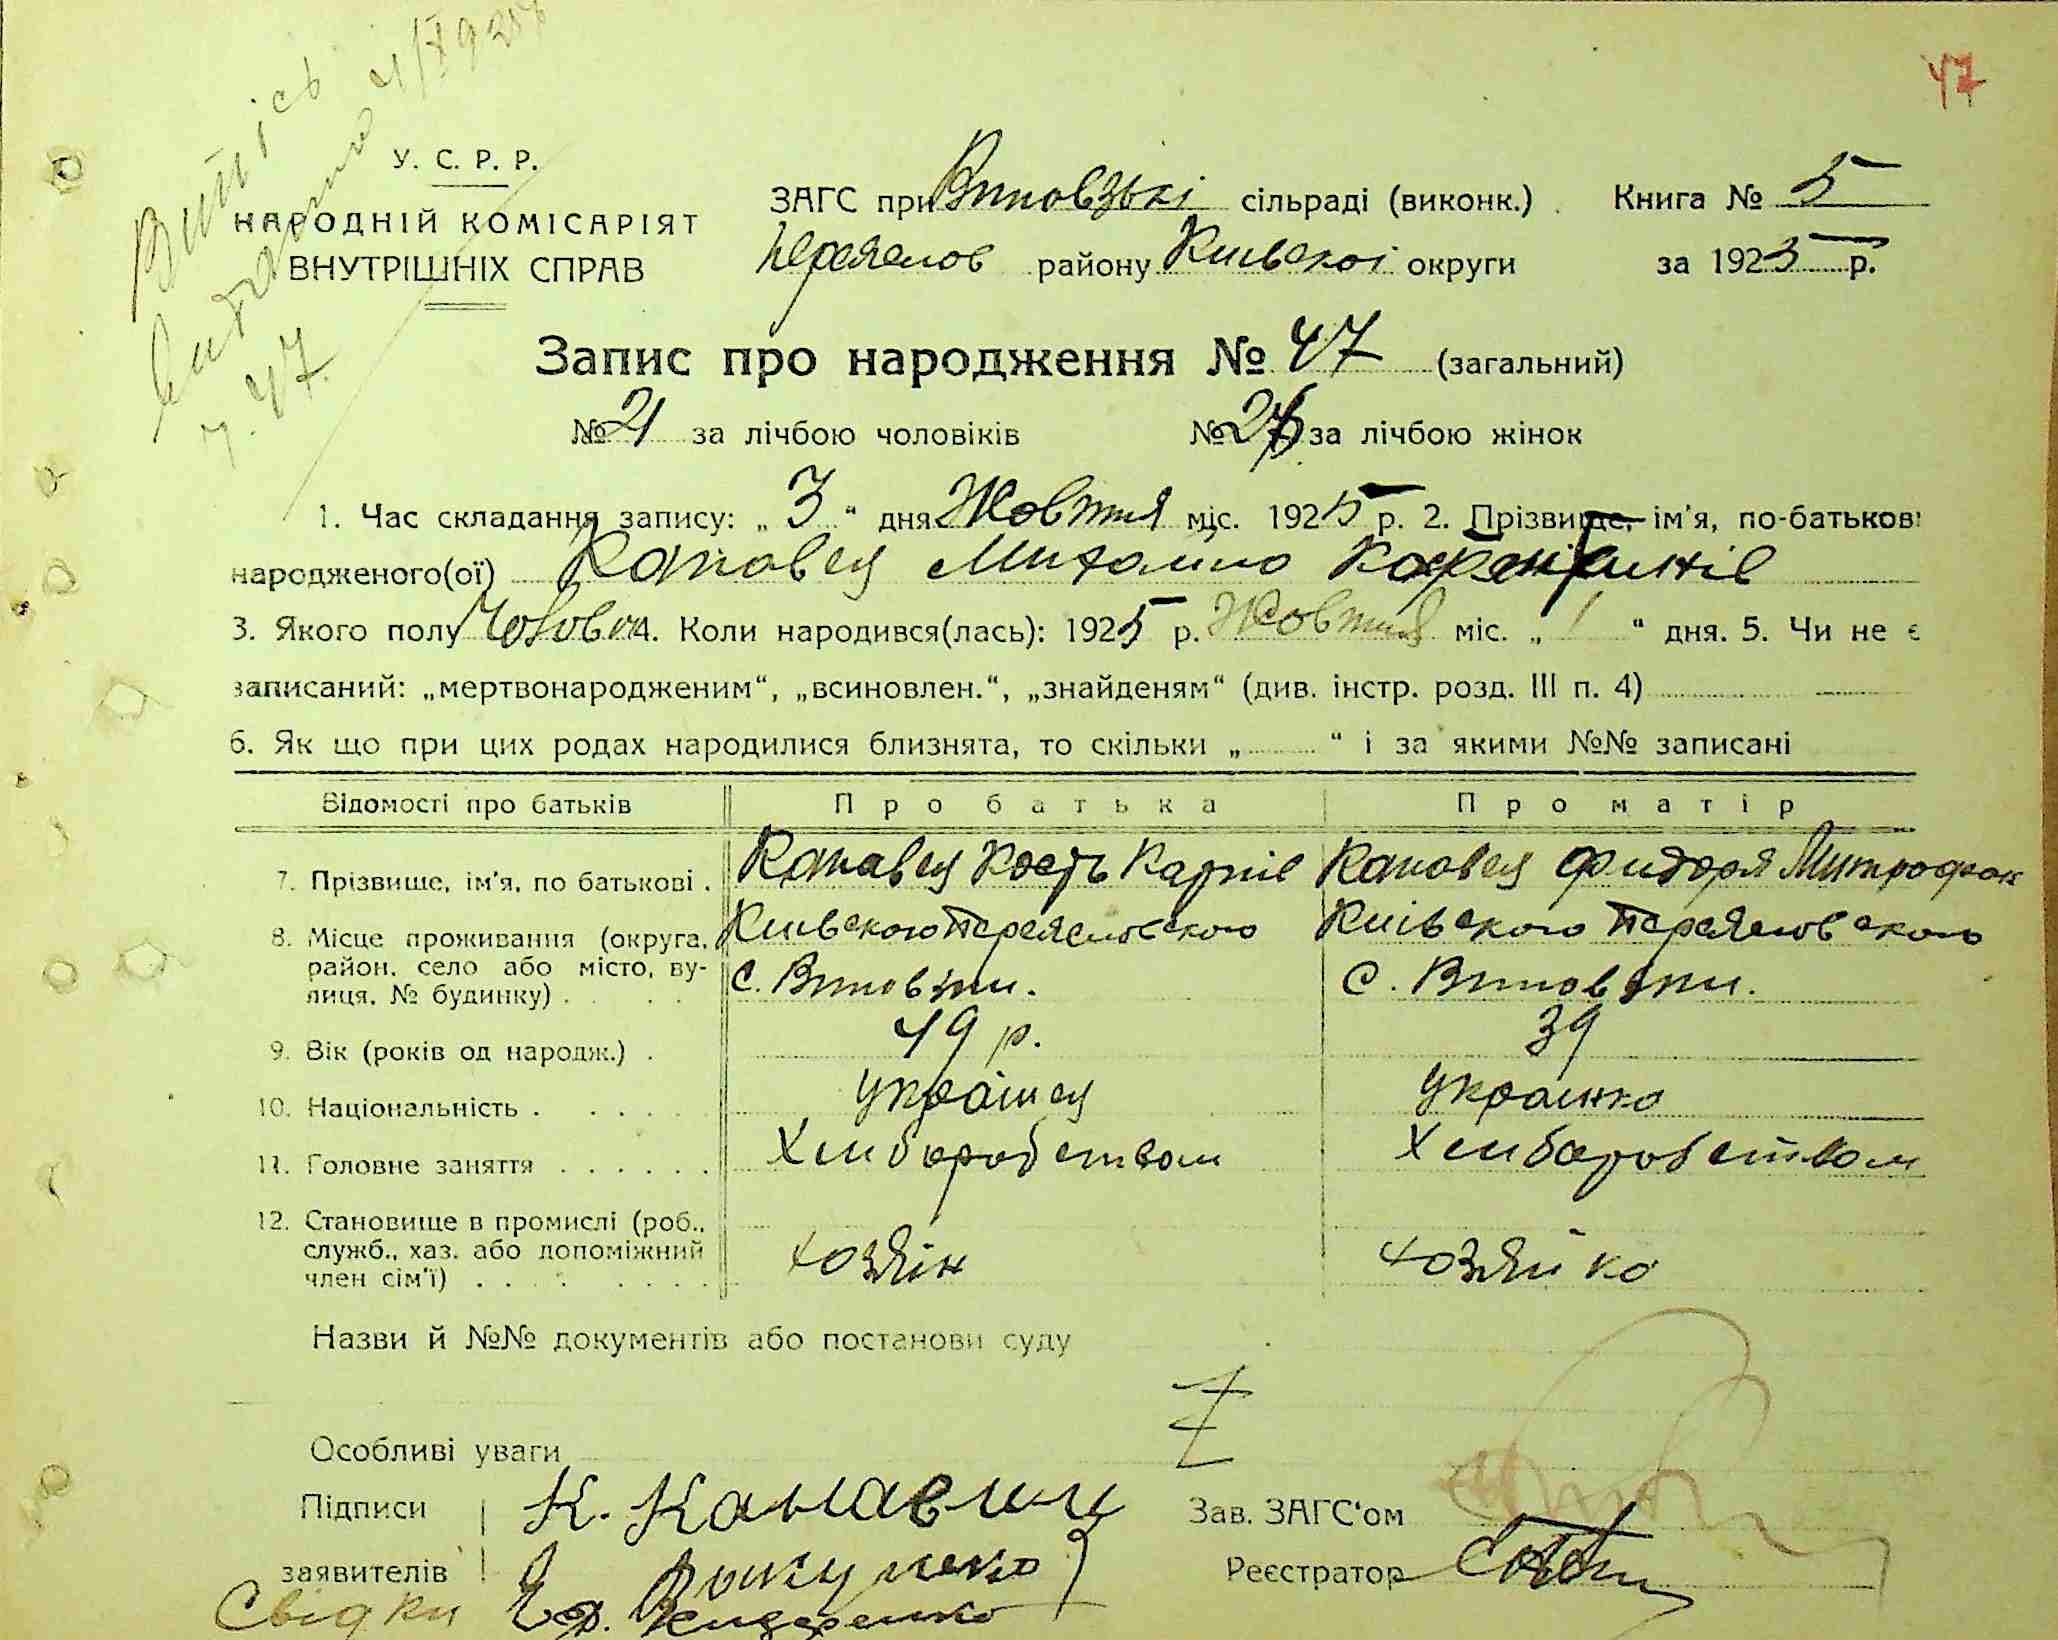 47
Витісь
Видано 4/X 925р
У. С. Р. Р.
НАРОДНІЙ КОМІСАРІЯТ
ВНУТРІШНІХ СПРАВ
ЗАГС при сільраді (виконк.)
Переяслов району Київскої округи
Книга № 5
за 1925 р.
Запис про народження № 47 (загальний)
№ 21 за лічбою чоловіків № 26 за лічбою жінок
1. Час складання запису: „ 3 “ дня Жовтня міс. 1925 р. 2. Прізвище, ім'я, по-батькові
народженого(ої) Михайло
3. Якого полу Чолов 4. Коли народився(лась): 1925 р. Жовтня міс. „ 1 “ дня. 5. Чи не є
записаний: „мертвонародженим“, „всиновлен.“, „знайденям“ (див. інстр. розд. III п. 4)
6. Як що при цих родах народилися близнята, то скільки „ “ і за якими №№ записані
Відомості про батьків Про батька Про матір
7. Прізвище, ім'я, по батькові . Кость Карпів Митрофан
8. Місце проживання (округа, район, село або місто, вулиця, № будинку) . Київского Переясловского Київского Переясловского
9. Вік (років од народж.) . 49 р. 39
10. Національність . українец українка
11. Головне заняття Хлиборобством Хлиборобством
12. Становище в промислі (роб., служб., хаз. або допоміжний член сім'ї) хозяін хозяйка
Назви й №№ документів або постанови суду
Особливі уваги
Підписи заявителів К.
Зав. ЗАГС'ом
Реєстратор
Свідки